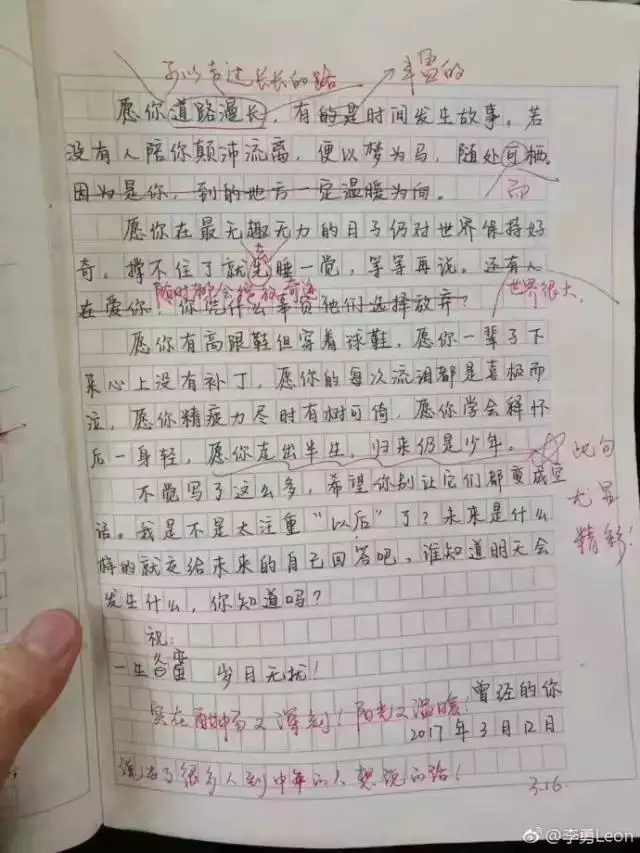 可以走过长长的路 丰富的
愿你道路漫长，有的是时间发生故事。若
没有人陪你颠沛流离，便以梦为马，随处可栖。
因为是你，到的地方一定温暖为向。 而
愿你在最无趣无力的日子仍对世界保持好
奇，撑不住了就先睡一觉，等等再说。还有人
随时都会绽放奇迹 世界很大，
在爱你！你凭什么辜负他们选择放弃？
愿你有高跟鞋但穿着球鞋，愿你一辈子下
来心上没有补丁，愿你的每次流泪都是喜极而
泣，愿你精疲力尽时有树可倚，愿你学会释怀
后一身轻，愿你走出半生，归来仍是少年。 此句
不觉写了这么多，希望你别让它们都变成空 尤显
话。我是不是太注重“以后”了？未来是什么 精彩！
样的就交给未来的自己回答吧，谁知道明天会
发生什么，你知道吗？
祝：
一生 岁月无扰！
曾经的你
实在酣畅又深刻！阳光又温暖！
2017年3月12日
说出了很多人到中年的人想说的话！
3.16
@李勇Leon